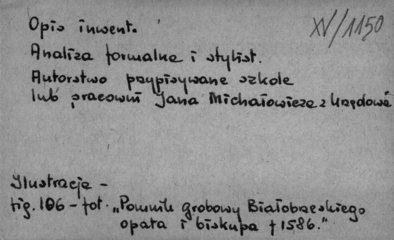 Opis inwent.
XV/1150
Analiza formalna i stylist.
Autorstwo przypisywane szkole
lub pracowni Jana Michałowicza z Urzędowa
Ilustracja -
fig. 106 - fot. „Pomnik grobowy Białobrzeskiego
opata i biskupa † 1586."